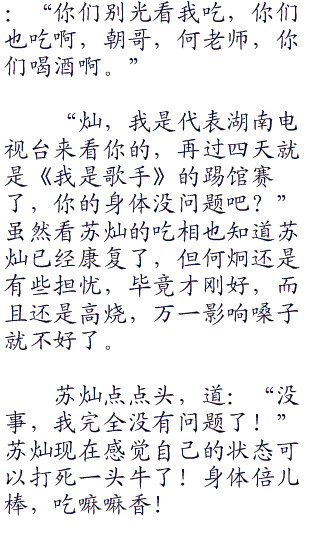 ：“你们别光看我吃，你们
也吃啊，朝哥，何老师，你
们喝酒啊。”
“灿，我是代表湖南电
视台来看你的，再过四天就
是《我是歌手》的踢馆赛
了，你的身体没问题吧？”
虽然看苏灿的吃相也知道苏
灿已经康复了，但何炯还是
有些担忧，毕竟才刚好，而
且还是高烧，万一影响嗓子
就不好了。
苏灿点点头，道：“没
事，我完全没有问题了！”
苏灿现在感觉自己的状态可
以打死一头牛了！身体倍儿
棒，吃嘛嘛香！